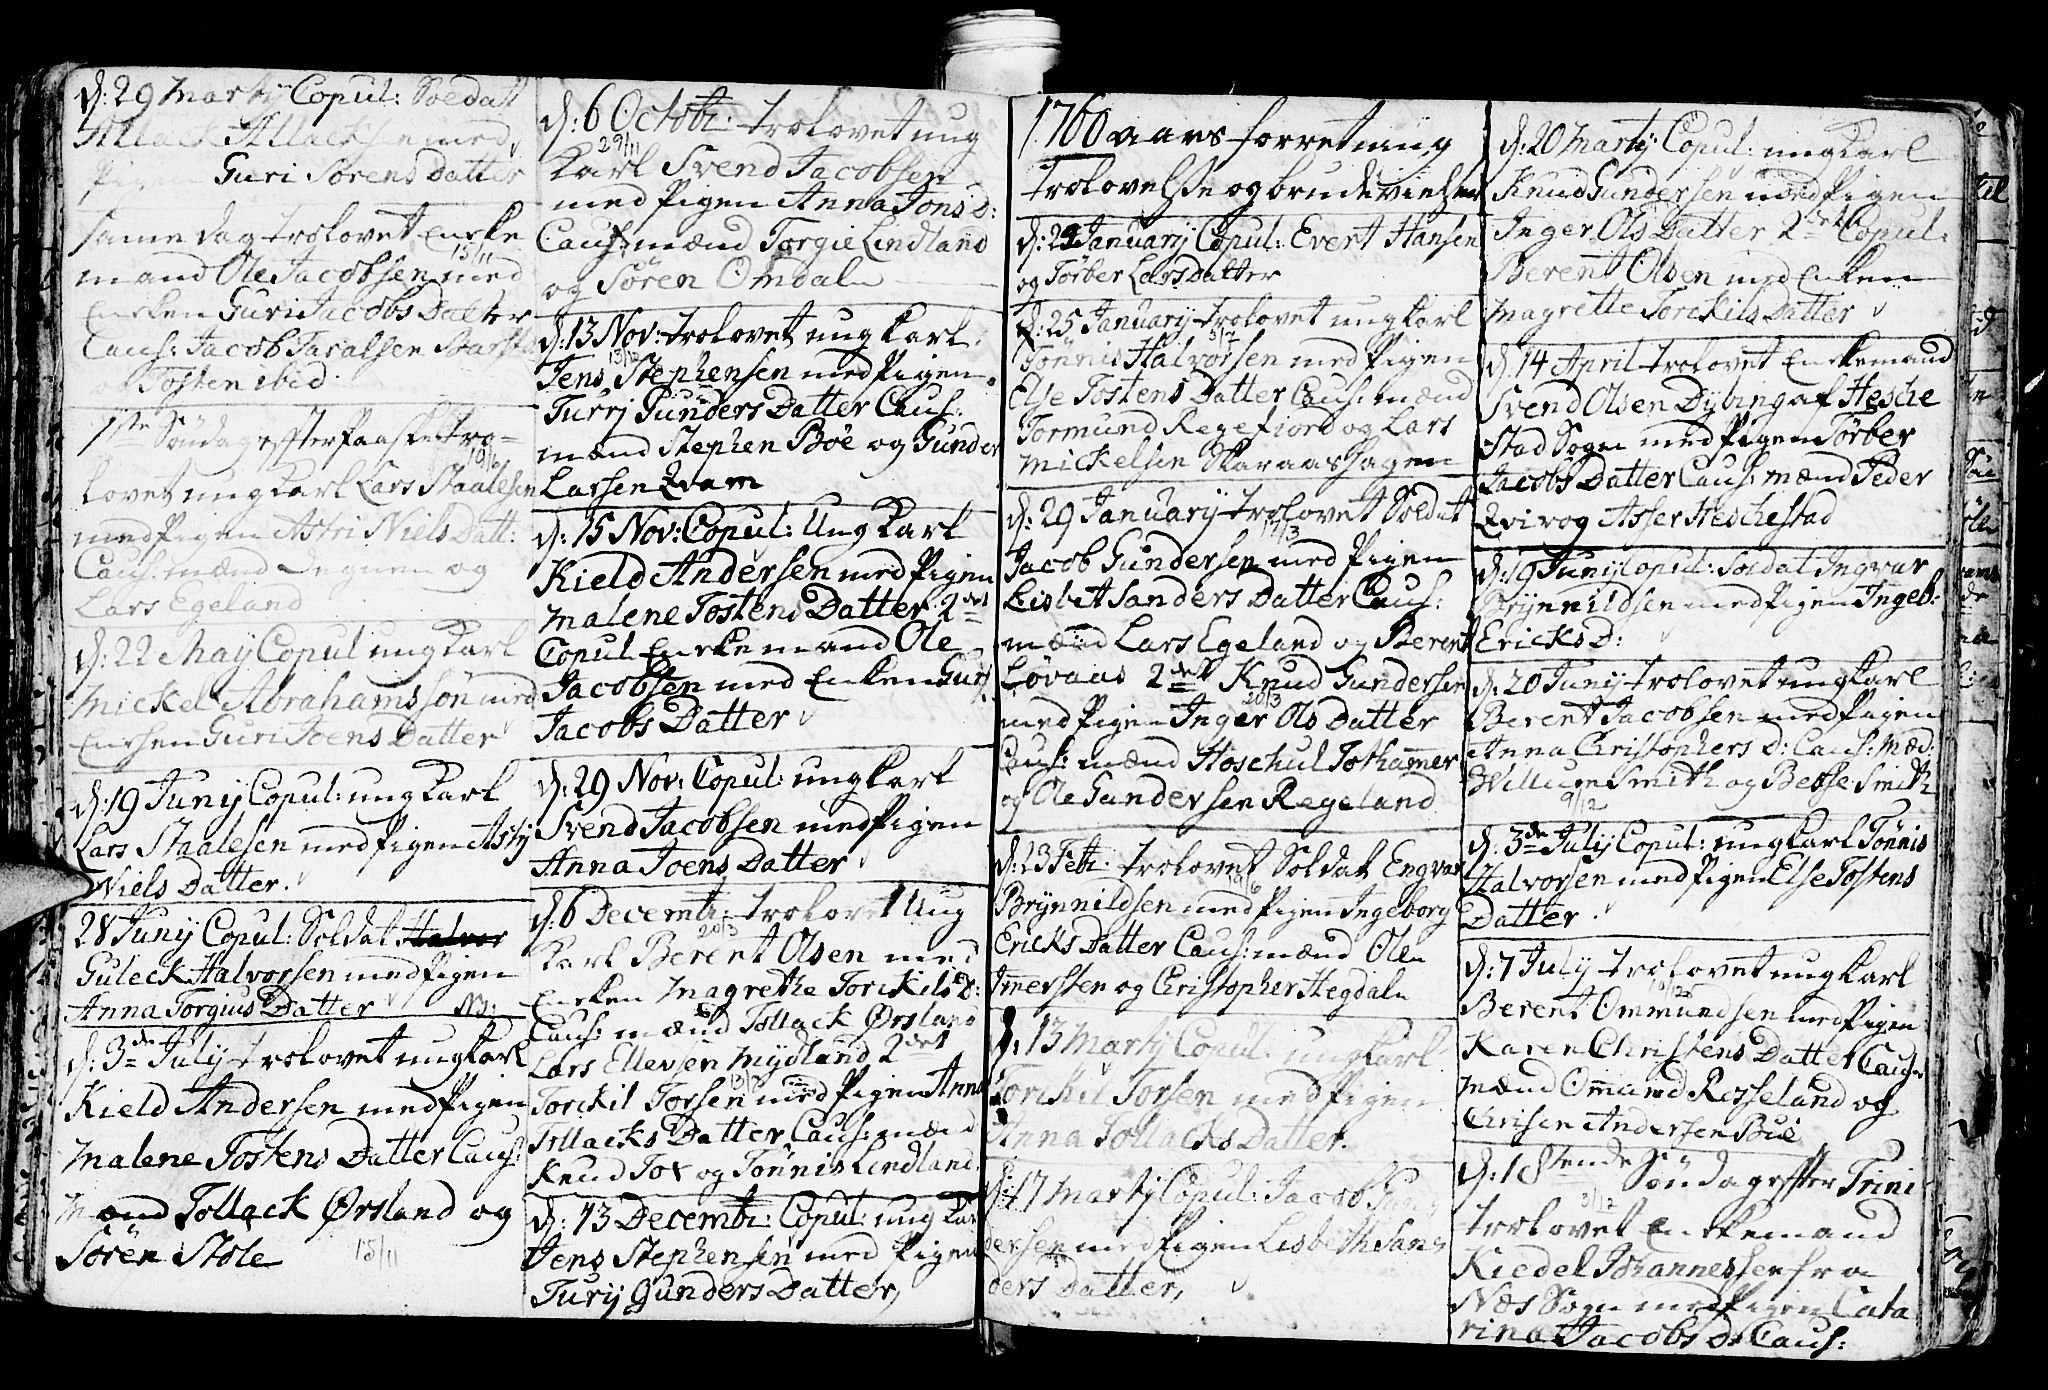 d: 29 Martij Copul: Soldat
Tollack Tollacksen med
Pigen Guri Sørens Datter
same dag trolovet Encke
15/11
mand Ole Jacobsen med
Encken Guri Jacobs Datter
Caus: Jacob Taralsen
og Tosten ibid.
1ste Søndag effter Paaske tro=
19/6
lovet ung Karl Lars Staalesen
med Pigen Astri Niels Datt:
Caus: mænd Degnen og
Lars Egeland
d: 22 May Copul ung Karl
Mickel Abrahamssøn med
Encken Guri Joens Datter
d: 19 Junij Copul: ung Karl
Lars Staalesen med Pigen Astrj
Niels Datter.
28 Junij Copul: Soldat Halvor
Guleck Halvorsen med Pigen
Anna Torgius Datter NB:
d: 3de Julij trolovet ung Karl
Kield Andersen med Pigen
Malene Tostens Datter Caus:
Mænd Tollack Ørsland og
Søren Stole 15/11
d: 6 Octobr: trolovet ung
29/11
Karl Svend Jacobsen
med Pigen Anna Jons D:
Caus: mænd Torgie Lindland
og Søren Omdal
d: 13 Nov: trolovet ung Karl
13/12
Jens Stephensen med Pigen
Turrj Gunders Datter Caus:
mænd Stephen Bøe og Gunder
Larsen Qvam
d: 15 Nov: Copul: Ung Karl
Kield Andersen med Pigen
Malene Tostens Datter 2det
Copul Enckemand Ole
Jacobsen med Encken Guri
Jacobs Datter
d: 29 Nov: Copul: ung Karl
Svend Jacobsen med Pigen
Anna Joens Datter
d: 6 Decembr: trolovet Ung
20/3
Karl Berent Olsen med
Encken Magrethe Torckils D:
Caus: mænd Tollack Ørsland
Lars Ellevsen Mydland 2det
13/3
Torckil Torsen med Pigen Anna
Tollacks Datter Caus: mænd
Knud Tox og Tønnis Lindland
d: 13 Decembr: Copul: ung Karl
Jens Stephensen med Pigen
Turij Gunders Datter,
1760 aars forretning
Trolovelse og brudevielser
d: 24 January Copul: Evert Hansen
og Tørber Lars Datter
d: 25 January trolovet ung Karl
3/7
Tønnis Halvorsen med Pigen
Else Tostens Datter Caus: mænd
Tormund Regefiord og Lars
Mickelsen Skaraashagen
d: 29 January trolovet Soldat
17/3
Jacob Gundersen med Pigen
Lisbet Sanders Datter Caus:
mænd Lars Egeland og Berent
Løvaas 2det Knud Gundersen
20/3
med Pigen Inger Ols Datter
Caus: mænd Hoschul Tothamer
og Ole Gundersen Regeland
d: 23 Febr: trolovet Soldat Engvar
19/6
Brynnildsen med Pigen Ingeborg
Ericks Datter Caus: mænd Ole
Imersten og Christopher Hegdal
d: 13 Martij Copul: ung Karl
Torckil Torsen med Pigen
Anna Tollacks Datter.
d: 17 Martij Copul: Jacob Gun
dersen med Pigen Lisbeth San
ders Datter,
d: 20 Martij Copul: ung Karl
Knud Gundersen med Pigen
Inger Ols Datter 2det Copul:
Berent Olsen med Encken
Magrette Torckils Datter
d: 14 April trolovet Enckemand
Svend Olsen Dybing af Hesche
stad Sogn med Pigen Tørber
Jacobs Datter Caus: mænd Peder
Qvivog Asser Heschestad
d: 19 Junij Copul: Soldat Ingvar
Brynnildsen med Pigen Ingeb:
Ericks D:
d: 20 Junij trolovet ung Karl
Berent Jacobsen med Pigen
Anna Christophers D: Caus: Mæd:
Willum Smith og Besse Smith
9/12
d: 3de Julij Copul: ung Karl Tønnis
Halvorsen med Pigen Else Tostens
Datter
d: 7 July trolovet ung Karl
Berent Ommundsen med Pigen
Karen Christens Datter Caus:
mænd Omund Rosseland og
Chrisen Andersen Bue
d: 18tende Søndag effter Trini
3/12
trolovet Enckemand
Kiedel Johannessen fra
Næs Sogn med Pigen Cata
rina Jacobs D: Caus: